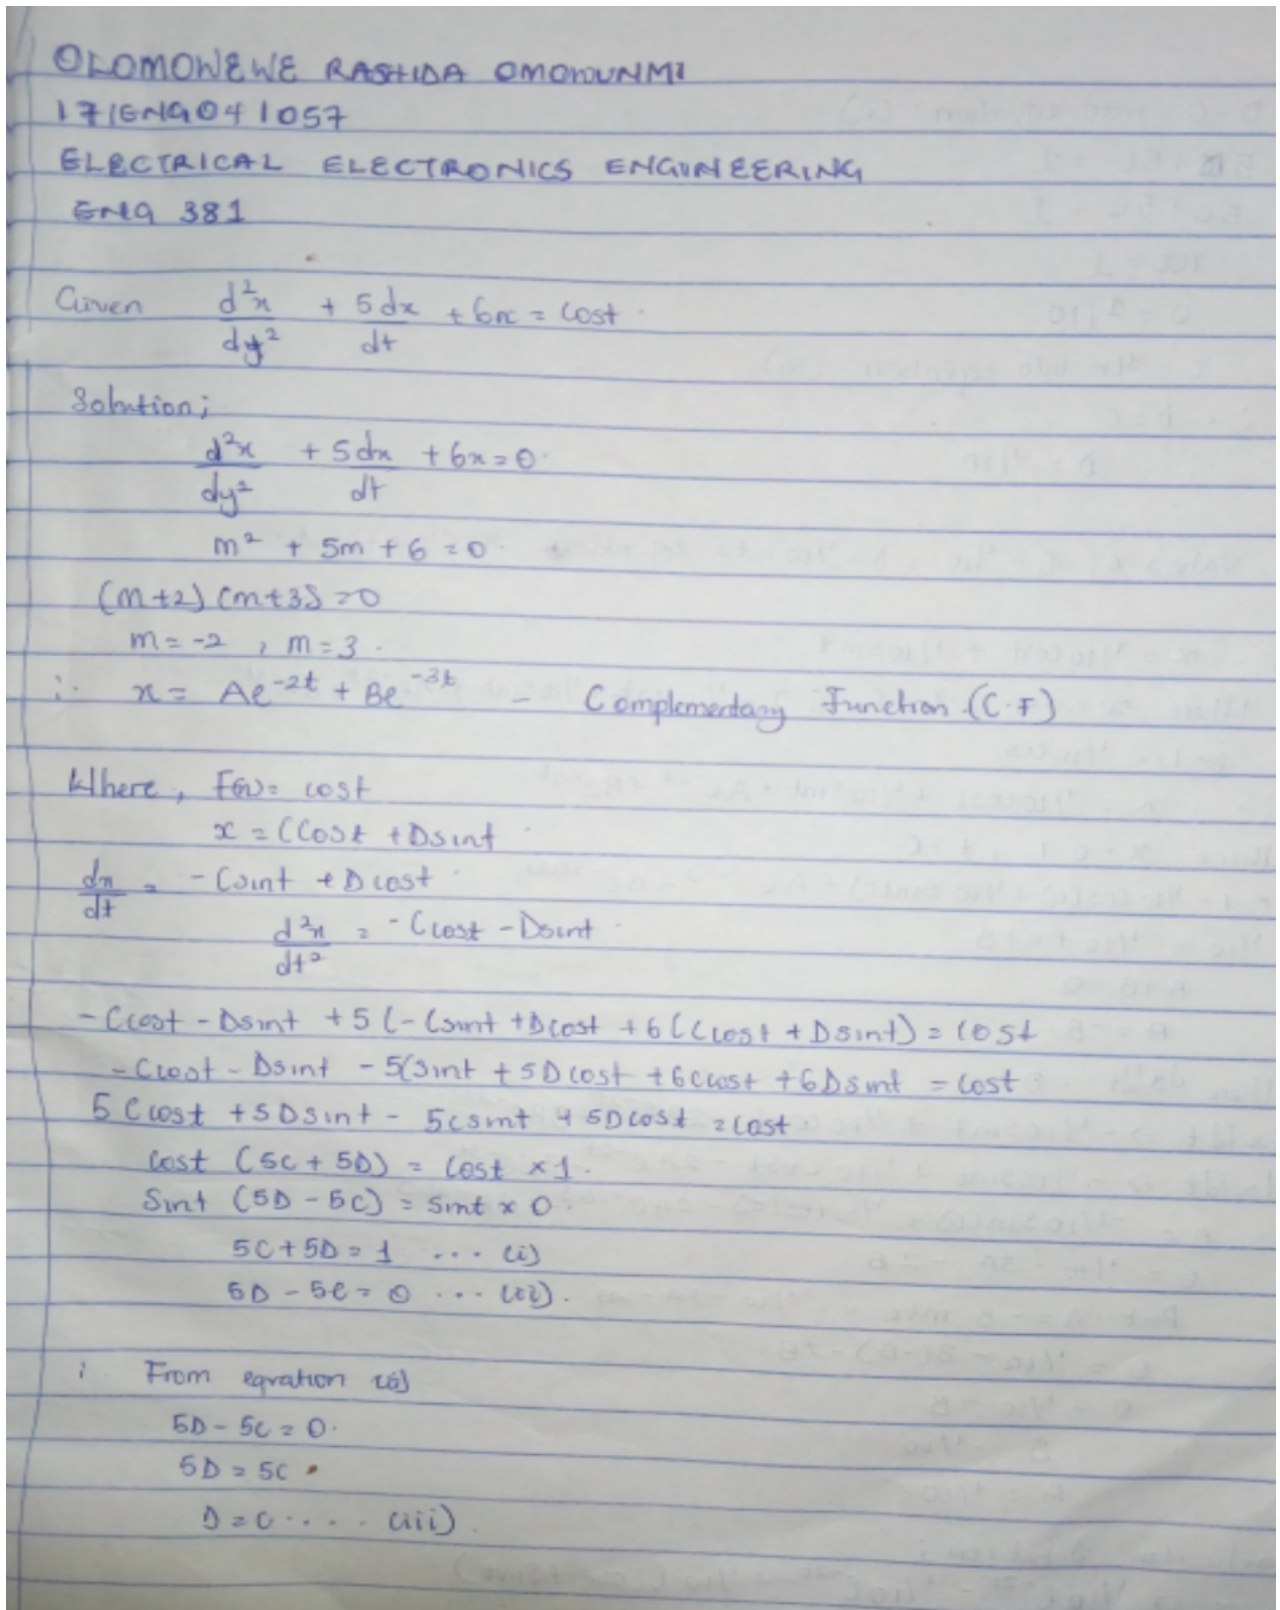 OLOMOWEWE RASHIDA OMOYUNMI
17/ENG04/057
ELECTRICAL ELECTRONICS ENGINEERING
ENG 381
Given d²x/dy² + 5dx/dt + 6x = cost
Solution;
d²x/dy² + 5dx/dt + 6x = 0
m² + 5m + 6 = 0
(m+2) (m+3) = 0
m = -2 , m = 3
∴ x = Ae^-2t + Be^-3t - Complementary Function (C.F)
Where, F(x) = cost
x = Ccost + Dsint
dx/dt = -Csint + Dcost
d²x/dt² = -Ccost - Dsint
-Ccost - Dsint + 5(-Csint + Dcost + 6(Ccost + Dsint) = cost
-Ccost - Dsint - 5Csint + 5Dcost + 6Ccost + 6Dsint = cost
5Ccost + 5Dsint - 5Csint + 5Dcost = cost
Cost (5C + 5D) = Cost x 1.
Sint (5D - 5C) = Sint x 0
5C + 5D = 1 ... (i)
5D - 5C = 0 ... (ii).
: From equation (ii)
5D - 5C = 0.
5D = 5C
D = C .... (iii)